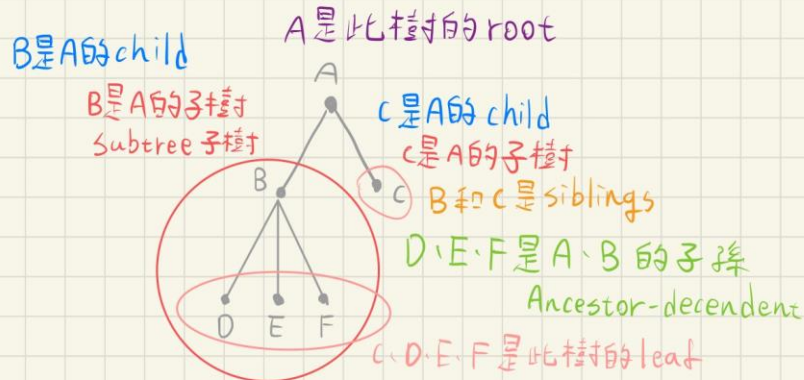 A是此樹的root
B是A的child
A
B是A的子樹
subtree子樹
C是A的child
C是A的子樹
B
C
B和C是siblings
D、E、F是A、B的子孫
Ancestor-decendent
D E F
C、D、E、F是此樹的leaf